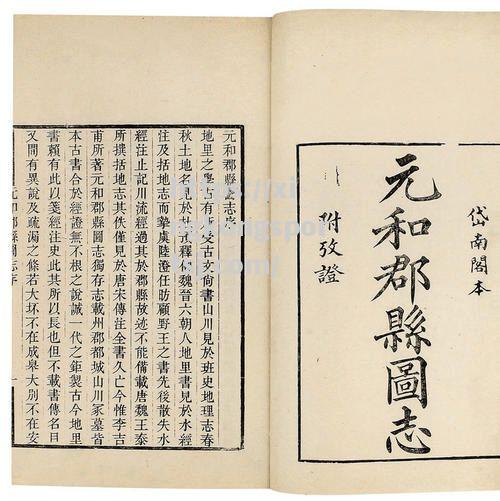 岱南閣本
元和郡縣圖志
附攷證
元和郡縣圖志序
地里之學有所受古文尚書山川見於班史地理志春
秋土地名見於杜預釋例魏晉六朝人地里書見於水經
注地志而摯虞陸澄任昉顧野王之書先後散失水
經注止記川流經過其於郡縣故迹不能備載唐魏王泰
所撰括地志其佚僅見於唐宋傳注全書久亡今惟李吉
甫所著元和郡縣圖志獨存志載州郡都城山川冢墓皆
本古書合於經證無不根之說誠一代之鉅製古今地里
書賴有此以箋經注史此其所以長也但不載書傳名目
又間有異說及疏漏之條若大坏不在成皋大別不在安
元和郡縣圖志序
一